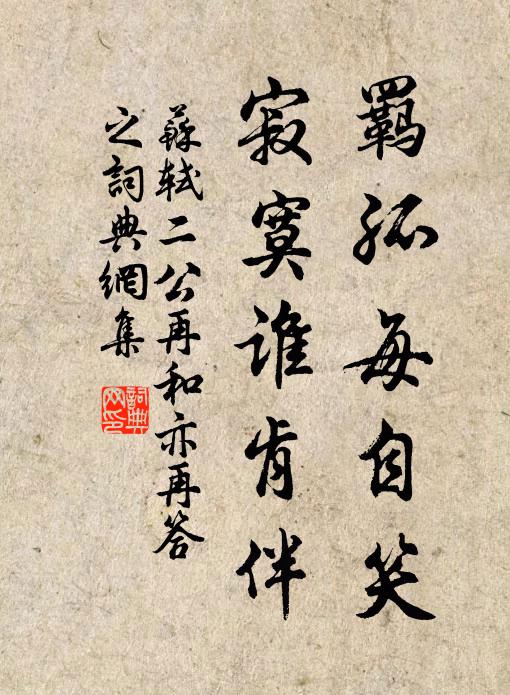 羈孤每自笑
寂寞誰肯伴
蘇軾二公再和亦再答
之詞典網集
詞典
网印